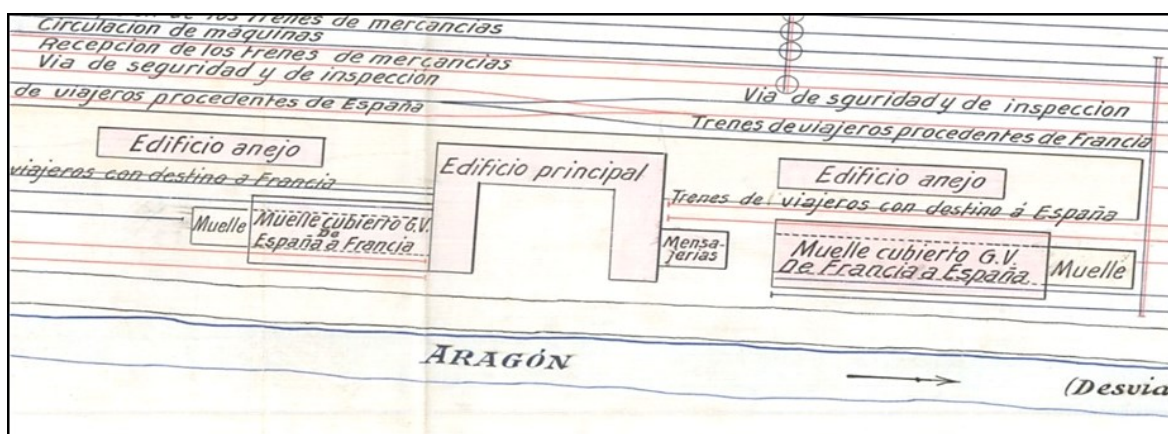 de los trenes de mercancías
Circulación de máquinas
Recepcion de los trenes de mercancías
Via de seguridad y de inspección
de viajeros procedentes de España
Via de sguridad y de inspeccion
Trenes de viajeros procedentes de Francia
Edificio anejo
Edificio principal
Edificio anejo
viajeros con destino á Francia
Trenes de viajeros con destino á España
Muelle
Muelle cubierto G.V.
De
España á Francia
Mensa-
jerias
Muelle cubierto G.V.
De Francia a España
Muelle
ARAGÓN
(Desvia